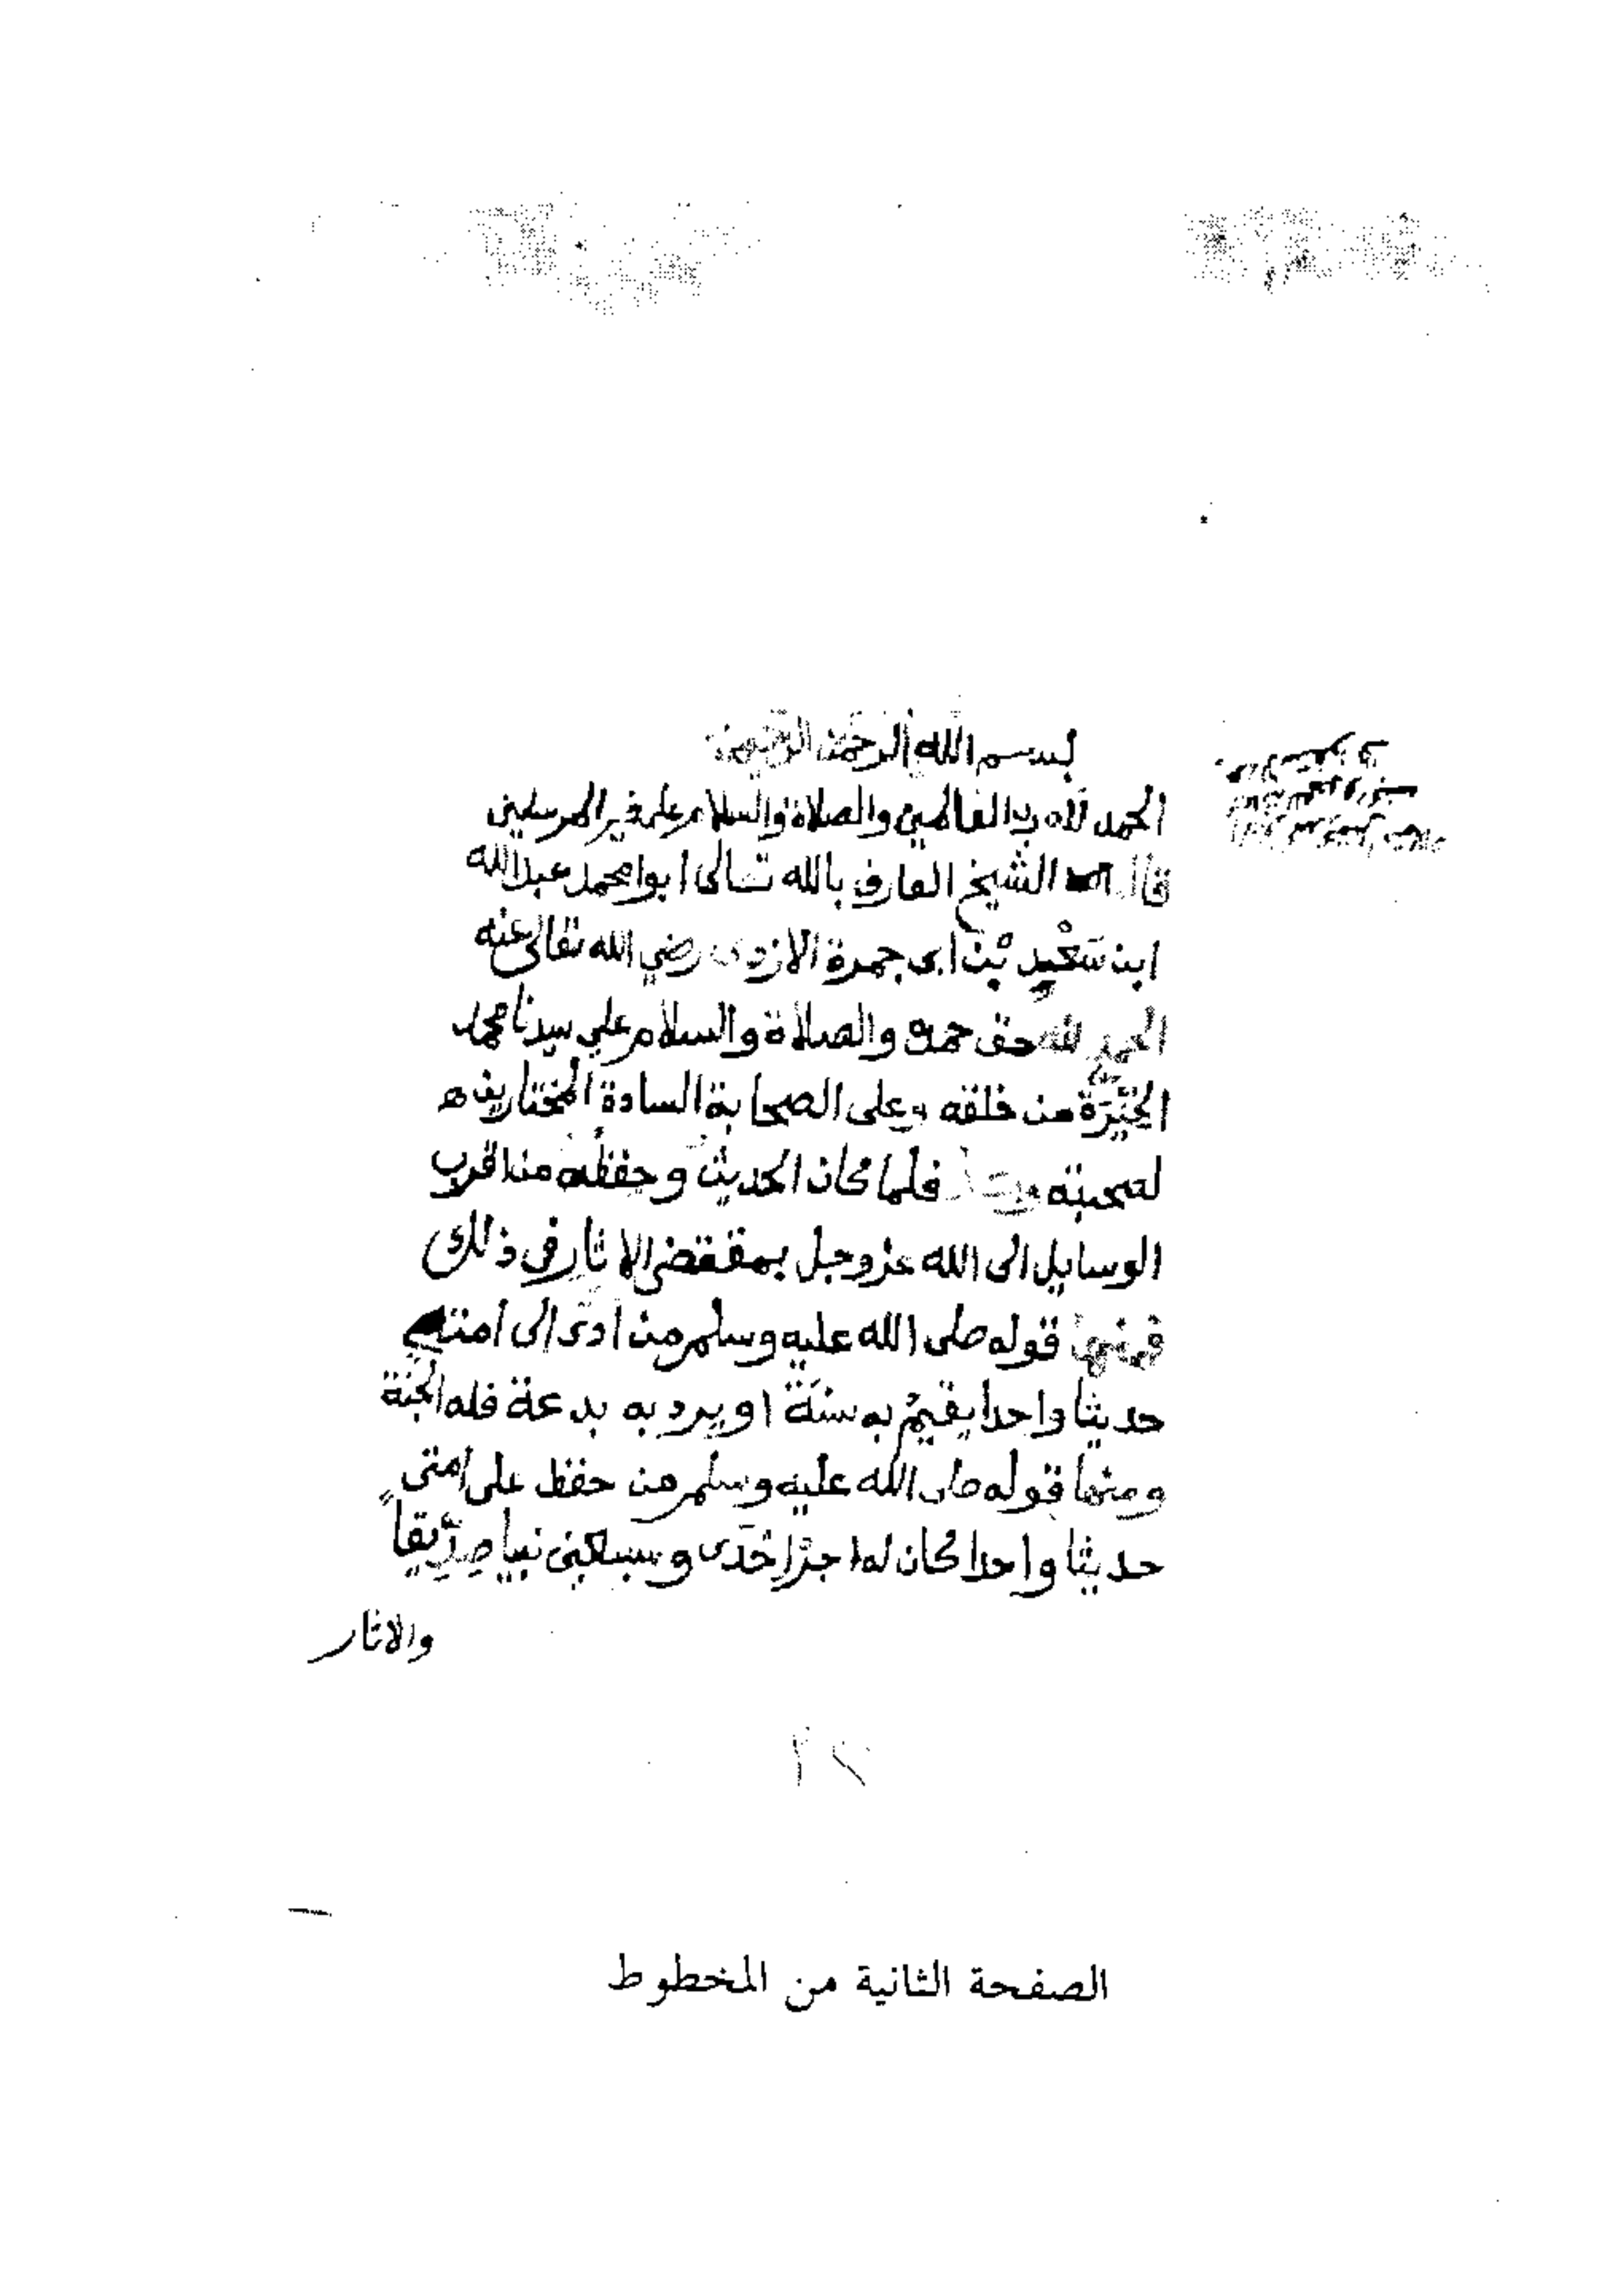 بسم الله الرحمن الرحيم
الحمد لله رب العالمين والصلاة والسلام على خير المرسلين
قال الشيخ العارف بالله تعالى ابو محمد عبد الله
ابن سَعْيد بْن ابى جمرة الازدى رضي الله تعالى عنه
الحمد لله حق حمده والصلاة والسلام علي سيدنا محمد
الخِيَرَة من خلقه وعلى الصحابة السادة المختارين
لصحبته فلما كان الحديث وحفظه من اقرب
الوسايل الى الله عز وجل بمقتضى الاثار في ذلك
فمنها قوله صلى الله عليه وسلم من ادّى الى امتى
حديثا واحدا يقيم به سنَّة او يرد به بدعة فله الجنة
ومنها قوله صلى الله عليه وسلم من حفظ على امتى
حديثا واحدا كان له اجر احدى وسبعين نبيا صِدِّيقاً
والاثار
الصفحة الثانية من المخطوط